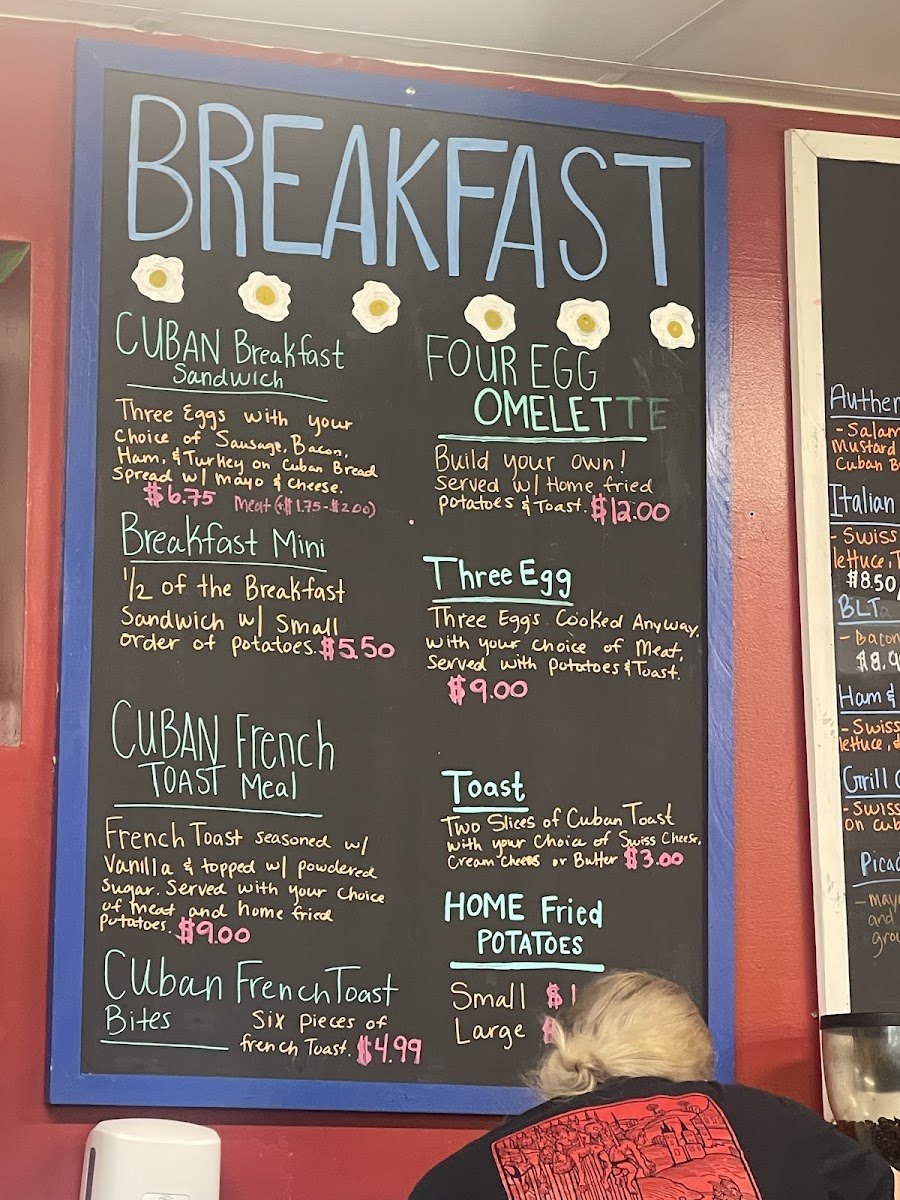 BREAKFAST
CUBAN Breakfast
Sandwich
Three Eggs with your
choice of Sausage, Bacon,
Ham, & Turkey on Cuban Bread
Spread w/ mayo & cheese.
$6.75 Meat (+$1.75-$2.00)
Breakfast Mini
1/2 of the Breakfast
Sandwich w/ Small
order of potatoes. $5.50
CUBAN French
TOAST Meal
French Toast seasoned w/
Vanilla & topped w/ powdered
Sugar. Served with your choice
of meat and home fried
potatoes. $9.00
Cuban French Toast
Bites Six pieces of
french Toast. $4.99
FOUR EGG
OMELETTE
Build your own!
Served w/ Home fried
potatoes & Toast. $12.00
Three Egg
Three Eggs Cooked Anyway,
with your choice of Meat,
Served with potatoes & Toast.
$9.00
Toast
Two Slices of Cuban Toast
with your Choice of Swiss Cheese,
Cream Cheese or Butter $3.00
HOME Fried
POTATOES
Small $1
Large
Authen
- Salam
mustard
Cuban B
Italian
- Swiss
lettuce, T
$8.50
BLT
- Bacon
$8.9
Ham &
- Swiss
lettuce,
Grill C
- Swiss
on cub
Picad
- mayo
and
grou